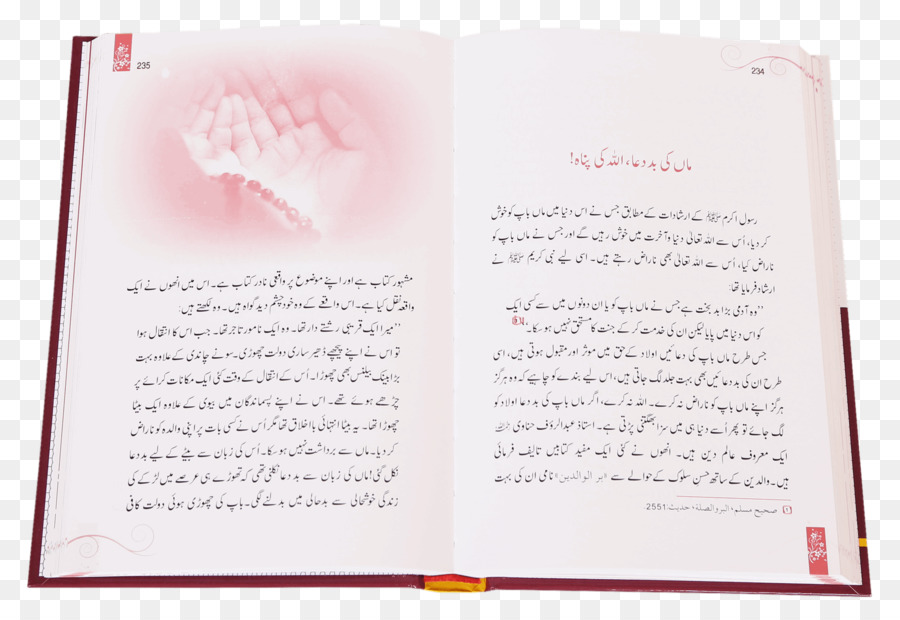 234
ماں کی بددعا، اللہ کی پناہ!
رسول اکرم ﷺ کے ارشادات کے مطابق جس نے اس دنیا میں ماں باپ کو خوش
کر دیا، اُس سے اللہ تعالیٰ دنیا و آخرت میں خوش رہیں گے اور جس نے ماں باپ کو
ناراض کیا، اُس سے اللہ تعالیٰ بھی ناراض رہتے ہیں۔ اسی لیے نبی کریم ﷺ نے
ارشاد فرمایا تھا:
”وہ آدمی بڑا بدبخت ہے جس نے ماں باپ کو یا ان دونوں میں سے کسی ایک
کو اس دنیا میں پایا لیکن ان کی خدمت کر کے جنت کا مستحق نہیں ہو سکا۔“
جس طرح ماں باپ کی دعائیں اولاد کے حق میں موثر اور مقبول ہوتی ہیں، اسی
طرح ان کی بددعائیں بھی بہت جلد لگ جاتی ہیں، اس لیے بندے کو چاہیے کہ وہ ہرگز
ہرگز اپنے ماں باپ کو ناراض نہ کرے۔ اللہ نہ کرے، اگر ماں باپ کی بددعا اولاد کو
لگ جائے تو پھر اُسے دنیا ہی میں سزا بھگتنی پڑتی ہے۔ استاذ عبدالرؤف حناوی
ایک معروف عالم دین ہیں۔ انھوں نے کئی ایک مفید کتابیں تالیف فرمائی
ہیں۔ والدین کے ساتھ حسن سلوک کے حوالے سے «بر الوالدین» نامی ان کی بہت
① صحيح مسلم، البر والصلة، حديث:2551.
235
مشہور کتاب ہے اور اپنے موضوع پر واقعی نادر کتاب ہے۔ اس میں انھوں نے ایک
واقعہ نقل کیا ہے۔ اس واقعے کے وہ خود چشم دید گواہ ہیں۔ وہ لکھتے ہیں:
”میرا ایک قریبی رشتے دار تھا۔ وہ ایک نامور تاجر تھا۔ جب اس کا انتقال ہوا
تو اس نے اپنے پیچھے ڈھیر ساری دولت چھوڑی۔ سونے چاندی کے علاوہ بہت
بڑا بینک بیلنس بھی چھوڑا۔ اُس کے انتقال کے وقت کئی ایک مکانات کرائے پر
چڑھے ہوئے تھے۔ اس نے اپنے پسماندگان میں بیوی کے علاوہ ایک بیٹا
چھوڑا تھا۔ یہ بیٹا انتہائی بااخلاق تھا مگر اُس نے کسی بات پر اپنی والدہ کو ناراض
کر دیا۔ ماں سے برداشت نہیں ہو سکا۔ اُس کی زبان سے بیٹے کے لیے بددعا
نکل گئی! ماں کی زبان سے بددعا نکلنی تھی کہ تھوڑے ہی عرصے میں لڑکے کی
زندگی خوشحالی سے بدحالی میں بدلنے لگی۔ باپ کی چھوڑی ہوئی دولت کافی